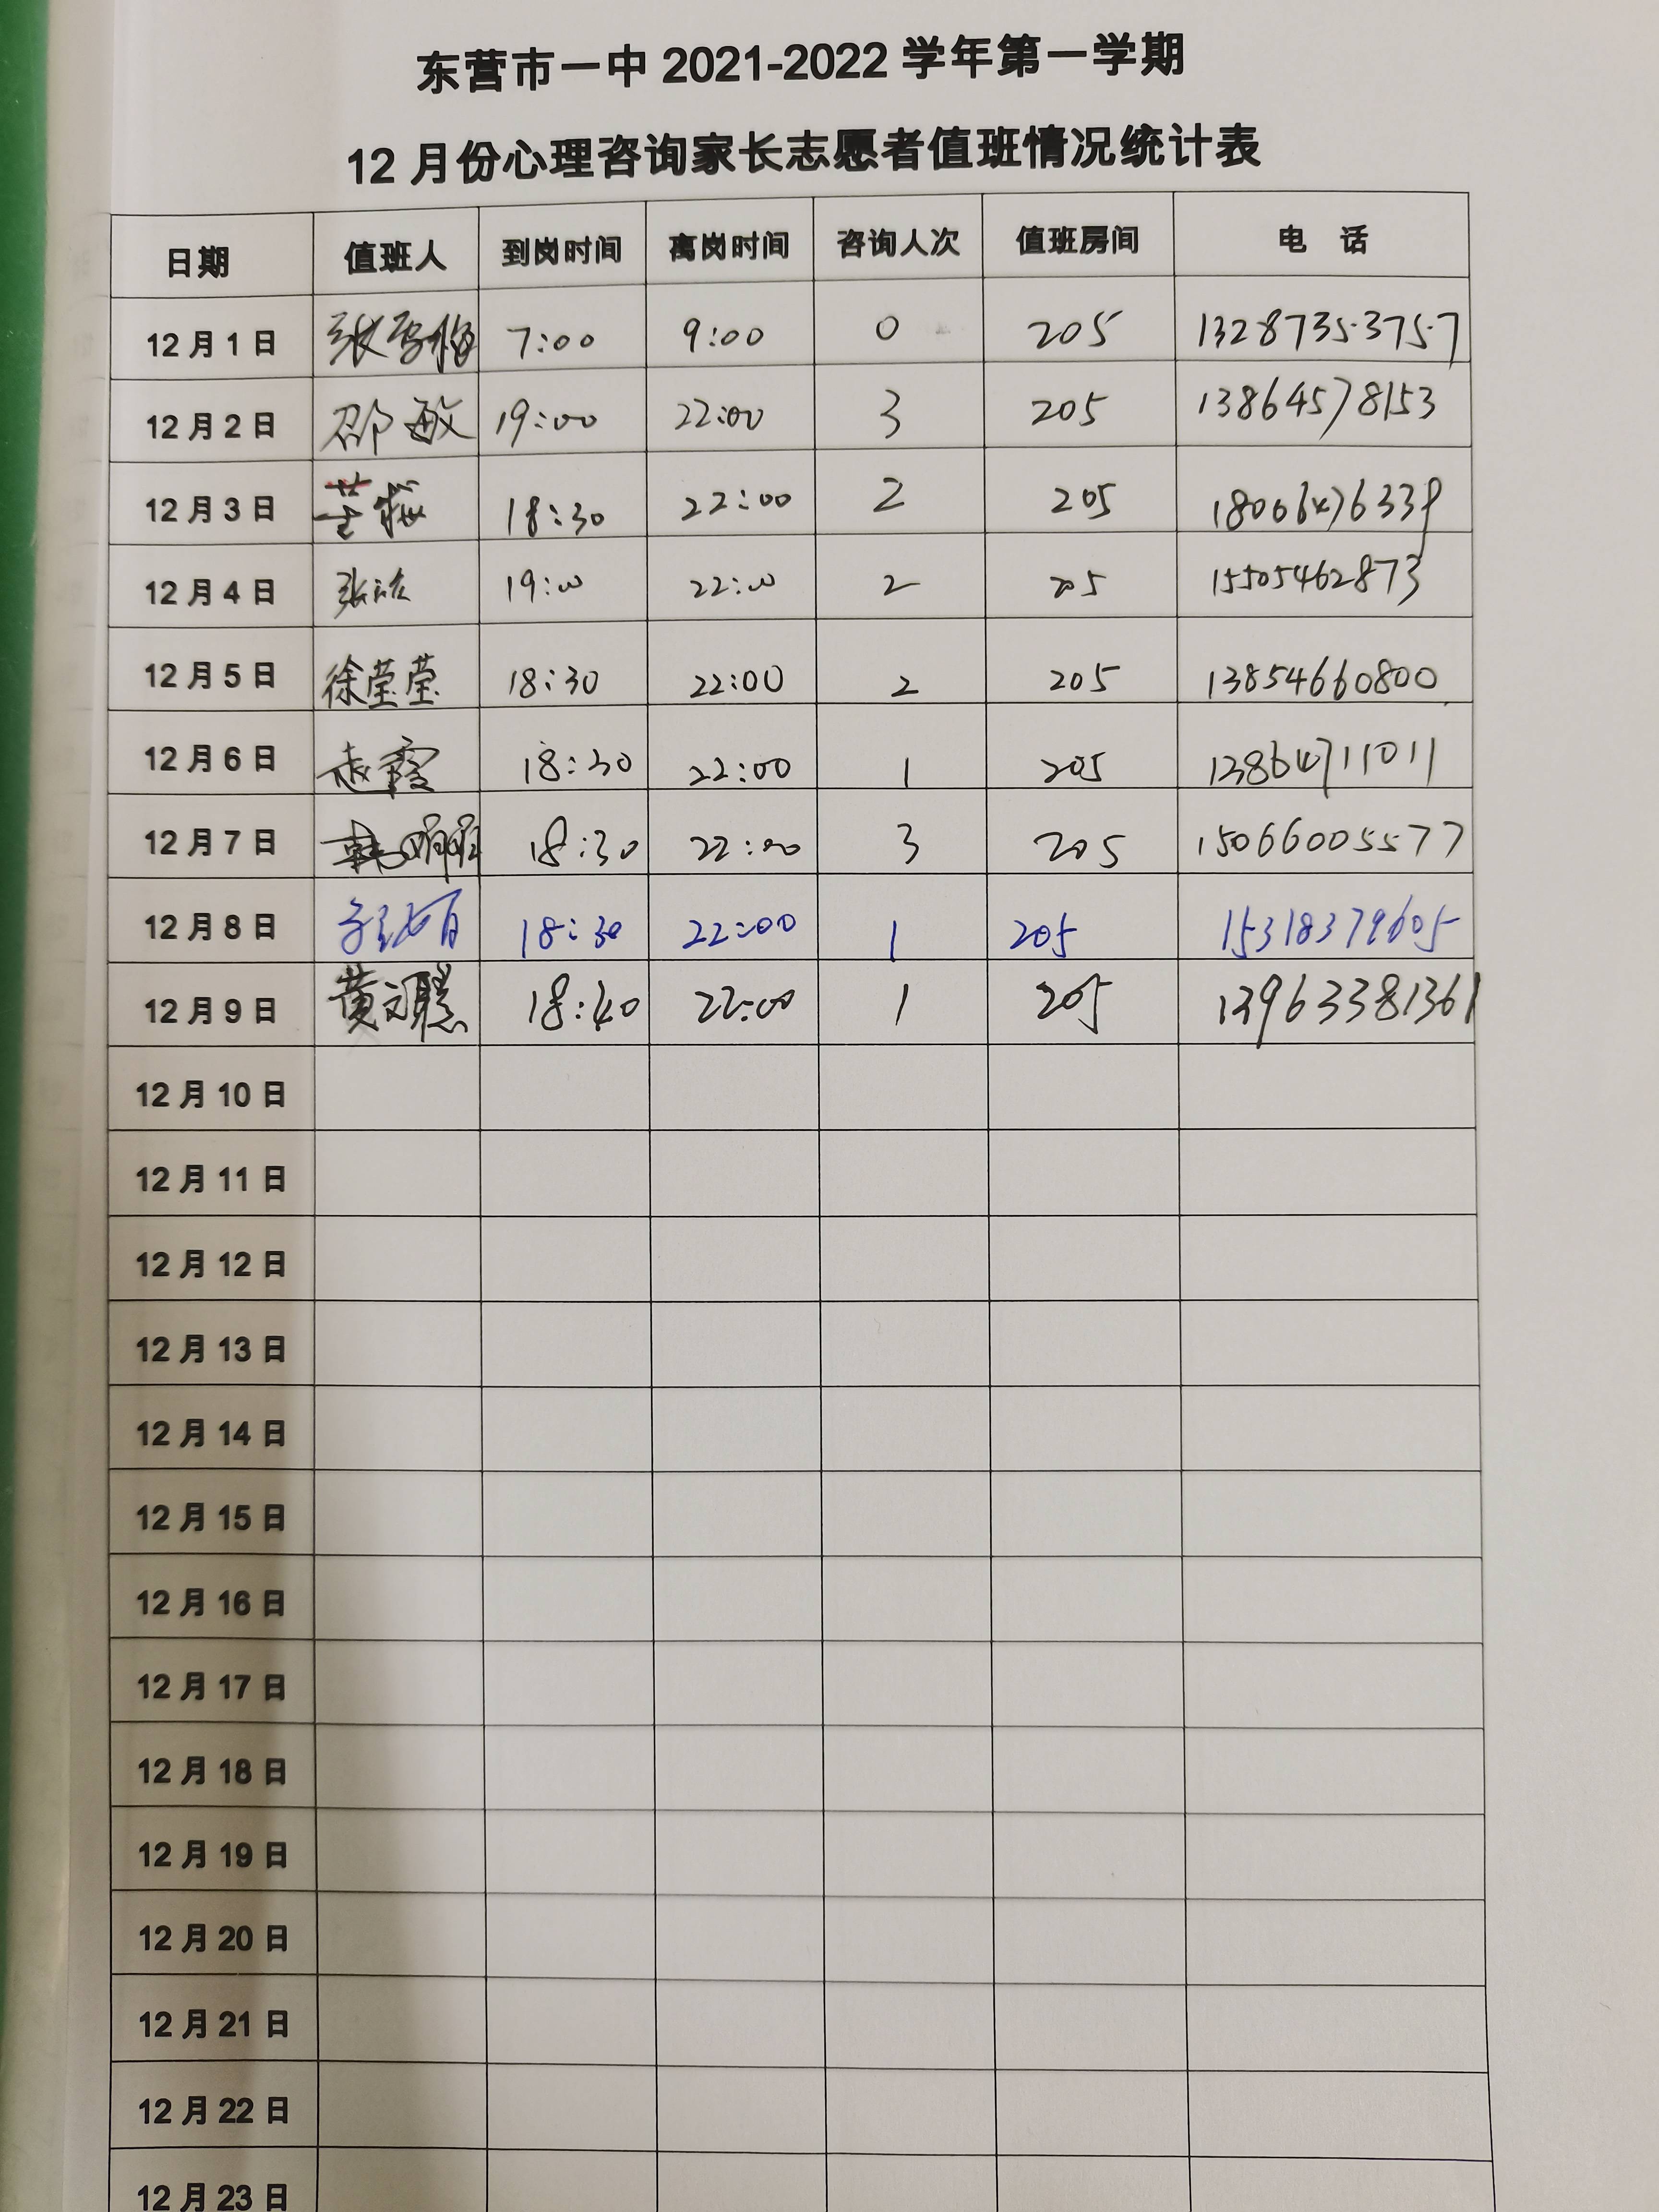 东营市一中 2021-2022 学年第一学期
12 月份心理咨询家长志愿者值班情况统计表
日期 值班人 到岗时间 离岗时间 咨询人次 值班房间 电 话
12 月 1 日 张雪梅 7:00 9:00 0 205 13287353757
12 月 2 日 邵敏 19:00 22:00 3 205 13864578153
12 月 3 日 18:30 22:00 2 205 18006476339
12 月 4 日 张 19:00 22:00 2 205 15505462873
12 月 5 日 徐莹莹 18:30 22:00 2 205 13854660800
12 月 6 日 赵霞 18:30 22:00 1 205 13864711011
12 月 7 日 韩 18:30 22:00 3 205 15066005577
12 月 8 日 18:30 22:00 1 205 15318379605
12 月 9 日 黄 18:40 22:00 1 205 13963381361
12 月 10 日
12 月 11 日
12 月 12 日
12 月 13 日
12 月 14 日
12 月 15 日
12 月 16 日
12 月 17 日
12 月 18 日
12 月 19 日
12 月 20 日
12 月 21 日
12 月 22 日
12 月 23 日